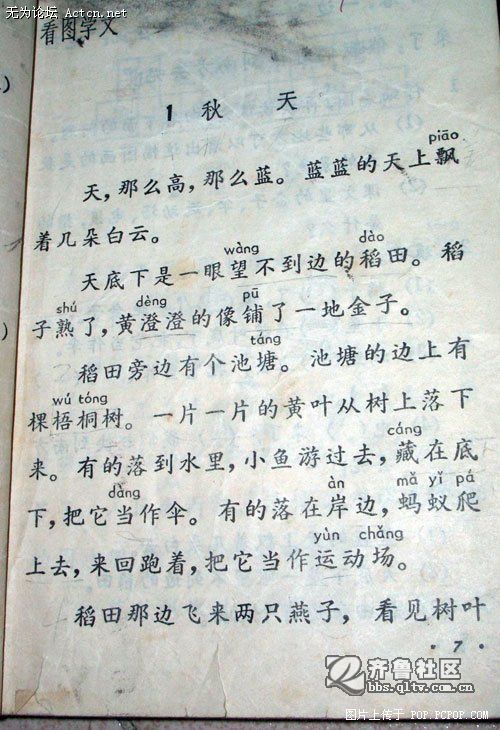 无为论坛 Actcn.net
看图学文
1 秋 天
piāo
天,那么高,那么蓝。蓝蓝的天上飘
着几朵白云。
wàng dào
天底下是一眼望不到边的稻田。稻
shú dèng pū
子熟了,黄澄澄的像铺了一地金子。
táng
稻田旁边有个池塘。池塘的边上有
wú tóng
棵梧桐树。一片一片的黄叶从树上落下
cáng
来。有的落到水里,小鱼游过去,藏在底
dàng àn mǎ yǐ pá
下,把它当作伞。有的落在岸边,蚂蚁爬
yùn chǎng
上去,来回跑着,把它当作运动场。
稻田那边飞来两只燕子,看见树叶
·7·
齐鲁社区
bbs.qltv.com.cn
图片上传于 POP.PCPOP.COM